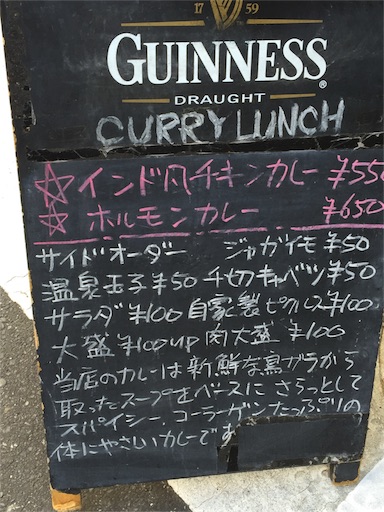 17 59
GUINNESS
DRAUGHT
CURRY LUNCH
☆インド風チキンカレー ¥550
☆ホルモンカレー ¥650
サイドオーダー ジャガイモ ¥50
温泉玉子 ¥50 千切キャベツ ¥50
サラダ ¥100 自家製ピクルス ¥100
大盛 ¥100up 肉大盛 ¥100
当店のカレーは新鮮な鳥ガラから
取ったスープをベースに さらっとして
スパイシー、コラーゲンたっぷりの
体にやさしいカレーです